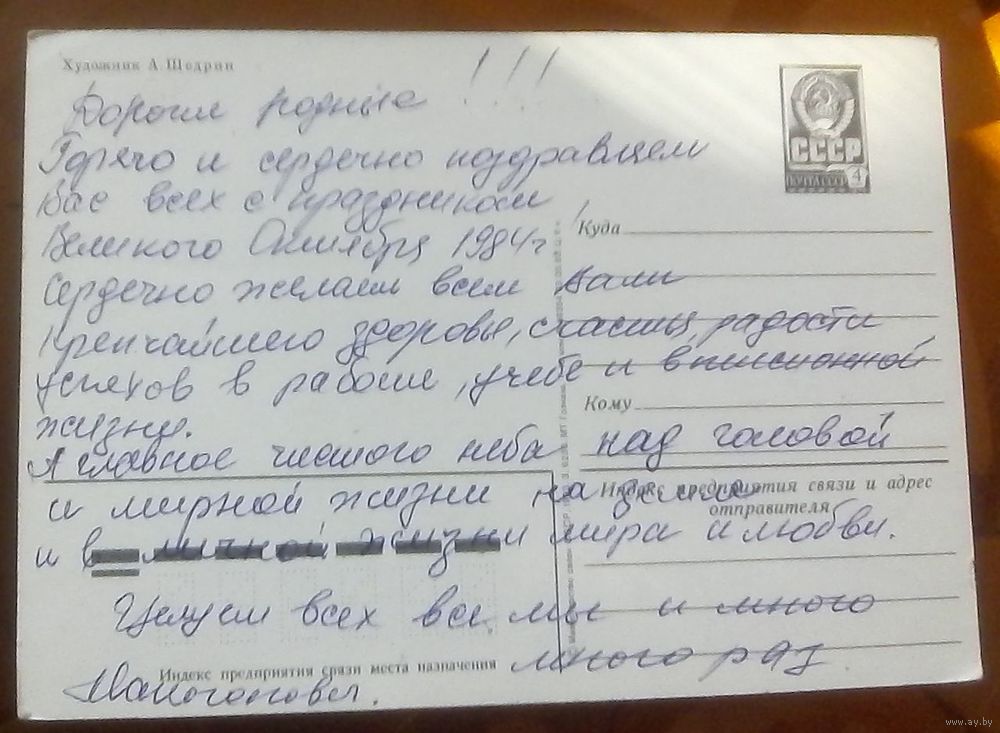 Художник А. Щедрин
Дорогие родные !!!
Горячо и сердечно поздравляем
Вас всех с праздником
Великого Октября 1984 г
Сердечно желаем всем Вам
Крепчайшего здоровья, счастья, радости
успехов в работе, учебе и в пенсионной
жизни.
А главное чистого неба над головой
и мирной жизни на земле
и в личной жизни мира и любви.
Целуем всех все мы и много
много раз
СССР
4
Куда
Кому
Индекс предприятия связи и адрес
отправителя
Индекс предприятия связи места назначения
www.ay.by